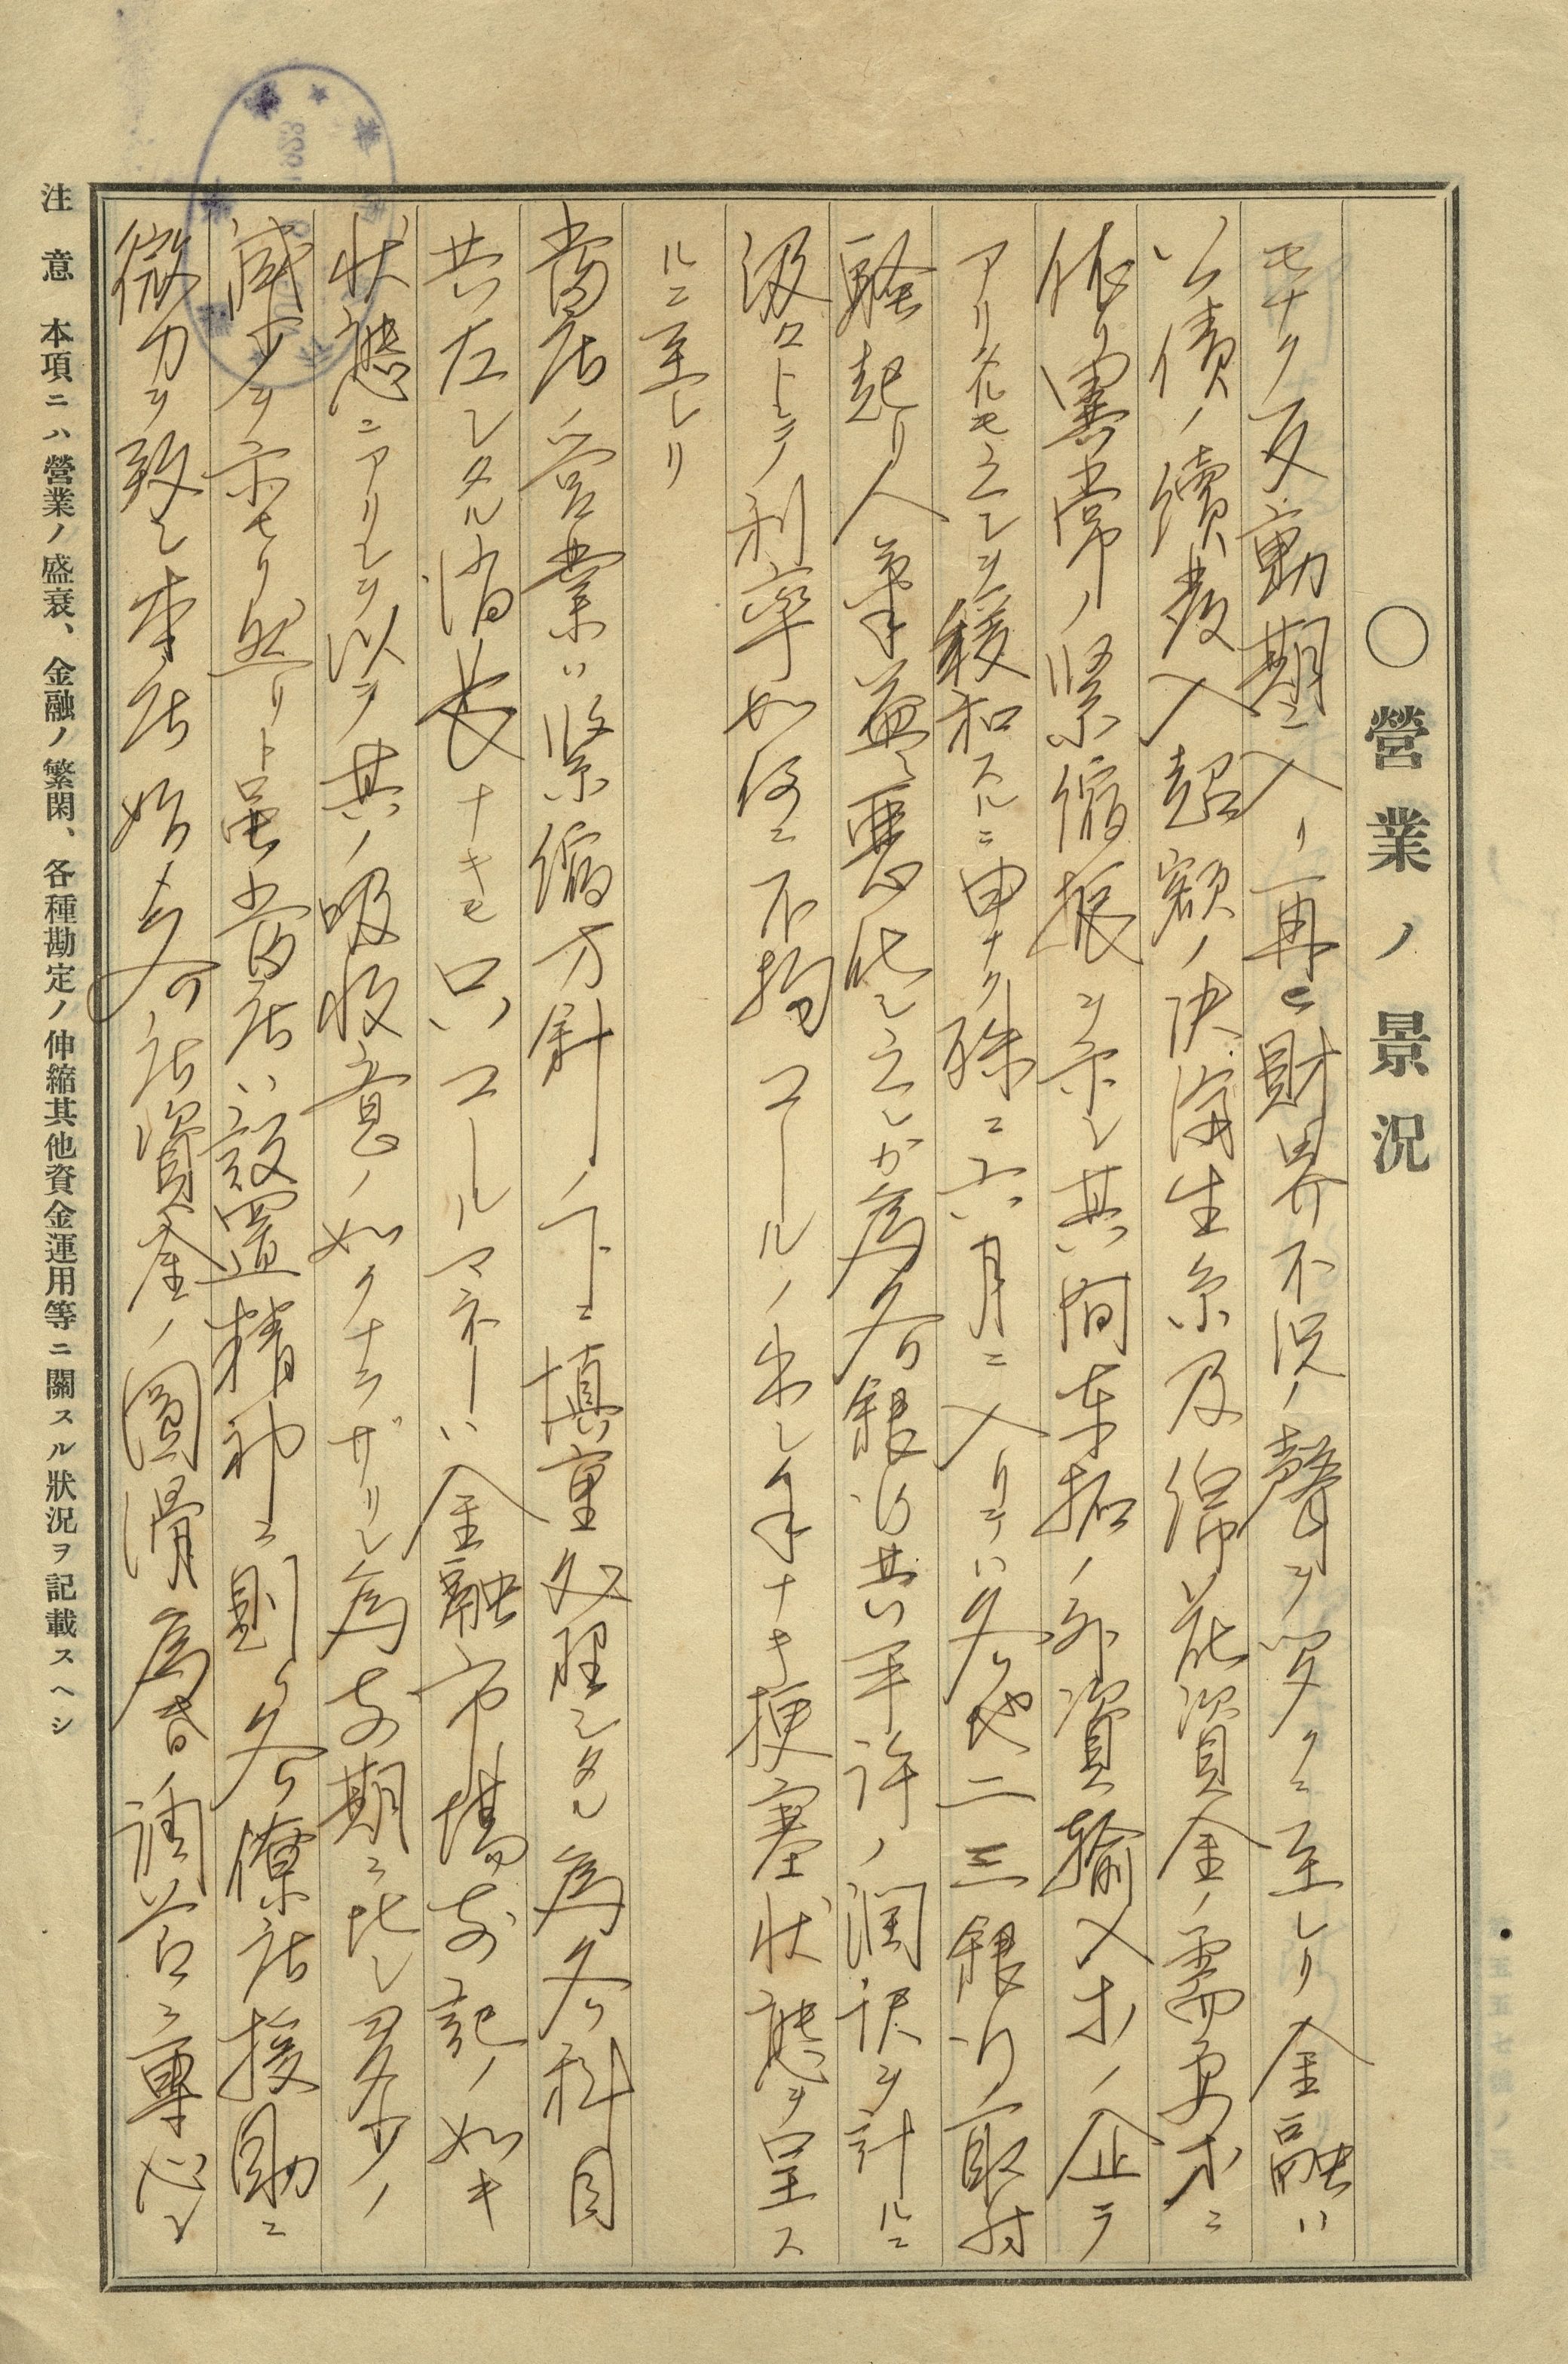 ○營業ノ景况
モナク反動期ニ入リ一再ヒ財界不況ノ聲ヲ聞クニ至レリ金融ハ
公債ノ續發入超額ノ決済生糸及綿花資金ノ需要ホニ
依リ異常ノ緊縮振ヲ示シ其間東拓ノ外資輸入ホノ企テ
アリタルモ之レヲ緩和スルニ由ナク殊ニ六月ニ入リテハ各地二三銀行ノ取付
騒起リ人氣益々悪化シ之レカ為各銀行共手許ノ潤沢ヲ計ルニ
汲々トシテ利率如何ニ不拘コールノ出シ手ナキ梗塞状態ヲ呈ス
ルニ至レリ
當店ノ營業ハ緊縮方針ノ下ニ慎重処理シタル為各科目
共左シタル消長ナキモ只ハコールマネーハ金融市場前記ノ如キ
状態ニアリシヲ以テ其ノ吸收意ノ如クナラザリシ為前期ニ比シ多少ノ
減少ヲ示セリ然リト虽當店ハ設置精神ニ則リ各僚店援助ニ
微力ヲ致シ本店始メ各店資金ノ圓滑為替ノ調節ニ專心シ
注意 本項ニハ營業ノ盛衰、金融ノ繁閑、各種勘定ノ伸縮其他資金運用等ニ關スル狀況ヲ記載スヘシ